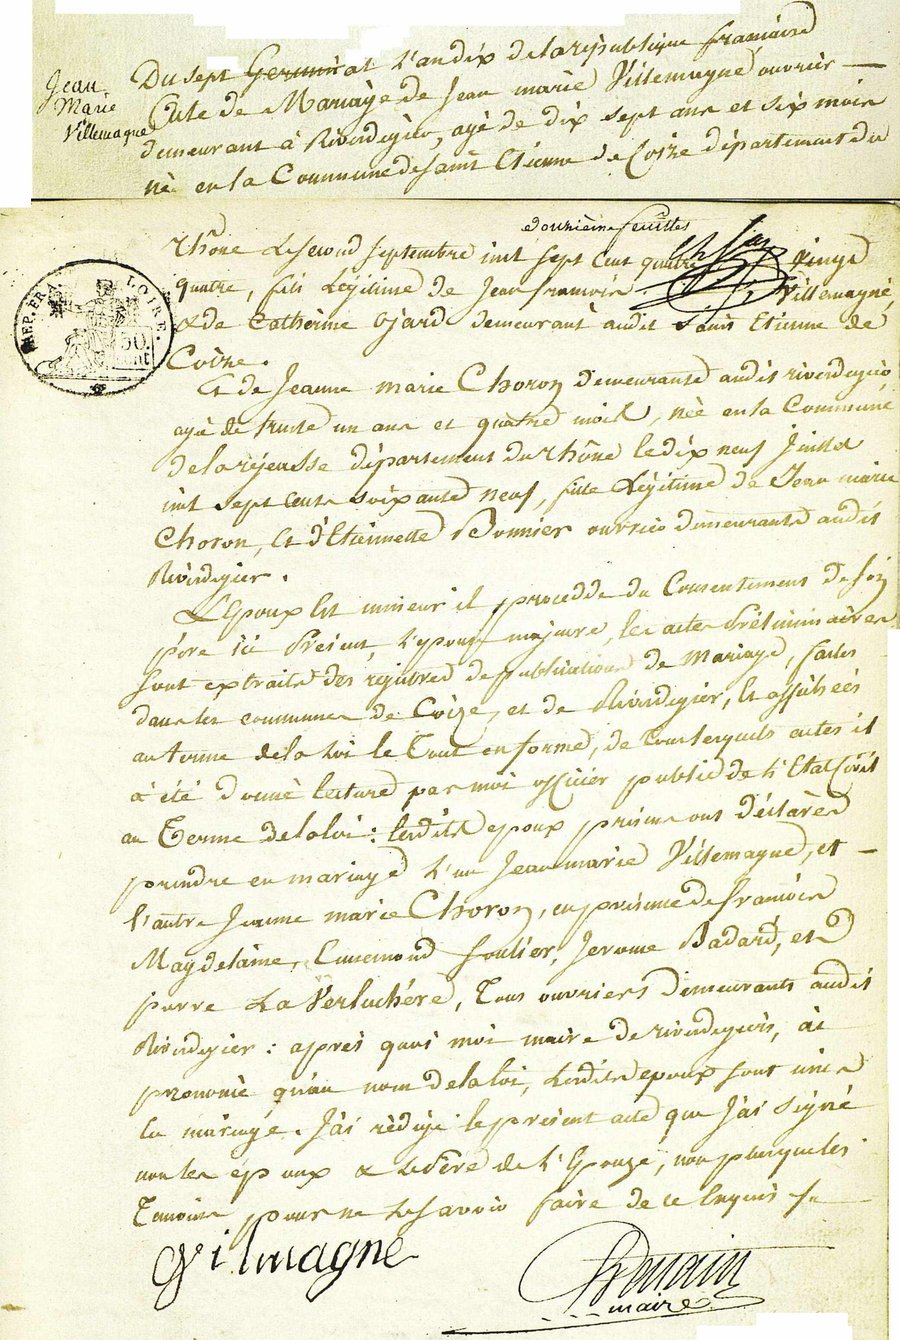 Jean
Marie
Villemagne
Du sept Germinal l'an dix de la république franscaise
Acte de Mariage de Jean marie Villemagne ouvrier —
demeurant à Riverdegier, agé de dix sept ans et six mois
né en la Commune de saint Etienne de Coize département du
douzième feuilles
rhône le second septembre mil sept cent quatre vingt
quatre, fils Légitime de Jean francois Villemagne
& de Catherine ojard demeurant audit Saint Etienne de
Coize.
Et de Jeanne marie Choron demeurante audit riverdegier
agé de trente un ans et quatre mois, née en la Commune
de la rejeasse département du rhône le dix neuf Juillet
mil sept cents soixante neuf, fille Légitime de Jean marie
Choron, et d'Etiennette Bonnier ouvrier demeurants audit
Riverdegier.
L'Epoux est mineur il procedde du Consentement de son
père ici Présent, l'epouse majeure, les actes Préliminaires
sont extraits des registres de publications de Mariage, faites
dans les communes de Coize, et de Riverdegier, et affichées
au terme de la loi le Tout en forme, de tous lesquels actes il
a été donné lecture par moi officier public de l'Etat Civil
au Terme de la loi: lesdits epoux présens ont déclarés
prendre en mariage l'un Jean marie Villemagne, et —
l'autre Jeanne marie Choron, en présence de francois
Magdelaine, Ennemond Soulier, Jerome Badard, et
pierre La Verluchère, Tous ouvriers demeurants audit
Riverdegier: après quoi moi maire de riverdegier, ai
prononcé qu'au nom de la loi, lesdits epoux sont unis
en mariage. J'ai rédigé le présent acte que j'ai signé
non les epoux & le Père de l'Epouze, non plus que les
Temoins pour ne le savoir faire de ce Enquis
Vilmagne
maire
REP. FRA.
LOIRE.
50
cent